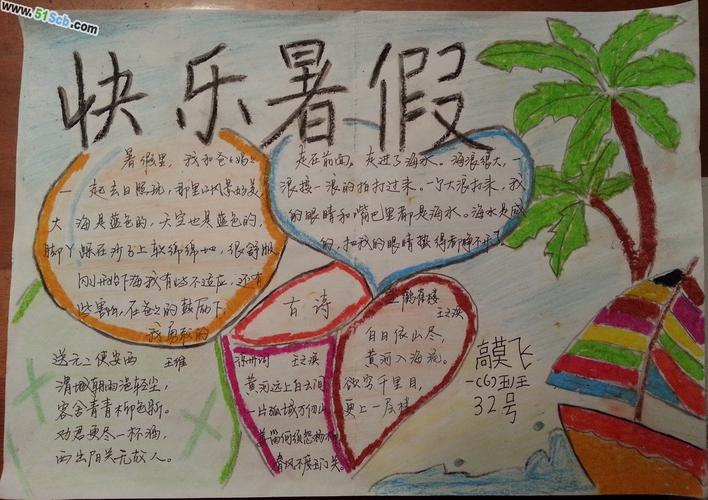 www.51Scb.com
快乐暑假
暑假里,我和爸妈
一起去日照玩,那里风景好美,
大海是蓝色的,天空也是蓝色的,
脚丫踩在沙子上软绵绵地,很舒服
刚开始下海我有些不适应,还有
些害怕,在爸爸的鼓励下,
我勇敢的
走在前面。走进了海水。海浪很大,一
浪接一浪的拍打过来。一个大浪打来,我
的眼睛和嘴巴里都是海水。海水是咸
的,把我的眼睛
古诗
送元二使安西 王维
渭城朝雨浥轻尘,
客舍青青柳色新。
劝君更尽一杯酒,
西出阳关无故人。
王之涣
黄河远上白云间
一片孤城万仞山
羌笛何须怨杨柳
春风不度玉门关。
登鹳雀楼
王之涣
白日依山尽,
黄河入海流。
欲穷千里目,
更上一层楼
高莫飞
一(6)班
32号